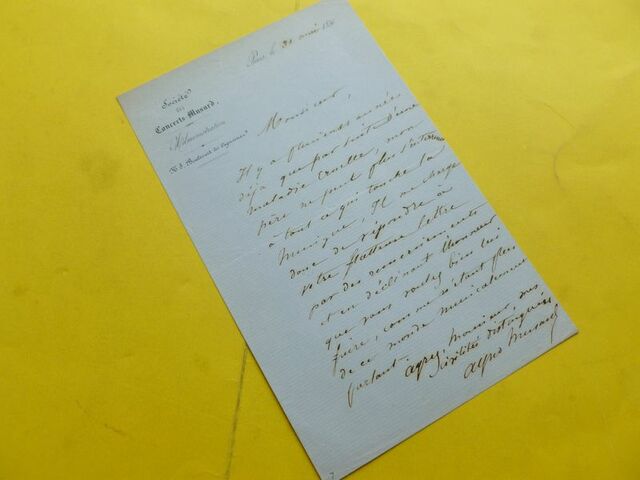 Société
des
Concerts Musard.
Administration
Boulevard des Capucines
Paris, le 31 mai 185
Monsieur,
Il y a plusieurs années
déjà que par suite d'une
maladie cruelle, mon
père ne peut plus s'intéresser
à tout ce qui touche la
musique, Il me charge
donc de répondre à
votre flatteuse lettre
par des remerciements
et en déclinant l'honneur
que vous voulez bien lui
faire, comme n'étant plus
de ce monde musicalement
parlant.
agréez, Monsieur, mes
civilités distinguées
Alfred Musard